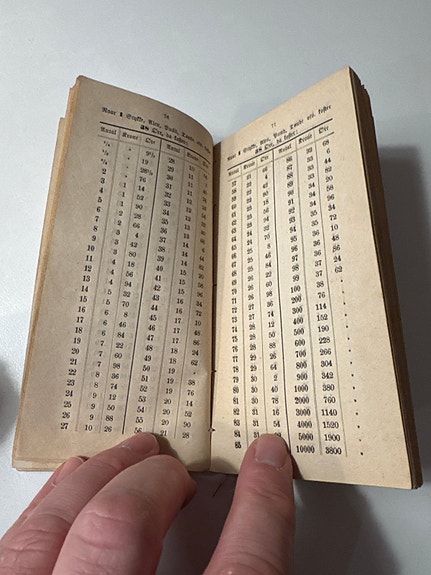 76
Naar 1 Stykke, Alen, Pund, Tønde osv. koster
38 Øre, da koster:
Antal Krone Øre Antal Krone Øre
1/4 " 9½ 28 10
1/2 " 19 29 11
3/4 " 28½ 30 11
2 " 76 31 11
3 1 14 32 12
4 1 52 33 12
5 1 90 34 12
6 2 28 35 13
7 2 66 36 13
8 3 4 37 14
9 3 42 38 14
10 3 80 39 14
11 4 18 40 15
12 4 56 41 15
13 4 94 42 15 96
14 5 32 43 16 34
15 5 70 44 16 72
16 6 8 45 17 10
17 6 46 46 17 48
18 6 84 47 17 86
19 7 22 48 18 24
20 7 60 49 18 62
21 7 98 50 19 "
22 8 36 51 19 38
23 8 74 52 19 76
24 9 12 53 20 14
25 9 50 54 20 52
26 9 88 55 20 90
27 10 26 56 21 28
77
Naar 1 Stykke, Alen, Pund, Tønde osv. koster
38 Øre, da koster:
Antal Krone Øre Antal Krone Øre
57 21 66 86 32 68
58 22 4 87 33 6
59 22 42 88 33 44
60 22 80 89 33 82
61 23 18 90 34 20
62 23 56 91 34 58
63 23 94 92 34 96
64 24 32 93 35 34
65 24 70 94 35 72
66 25 8 95 36 10
67 25 46 96 36 48
68 25 84 97 36 86
69 26 22 98 37 24
70 26 60 99 37 62
71 26 98 100 38 "
72 27 36 200 76 "
73 27 74 300 114 "
74 28 12 400 152 "
75 28 50 500 190 "
76 28 88 600 228 "
77 29 26 700 266 "
78 29 64 800 304 "
79 30 2 900 342 "
80 30 40 1000 380 "
81 30 78 2000 760 "
82 31 16 3000 1140 "
83 31 54 4000 1520 "
84 31 5000 1900 "
85 10000 3800 "